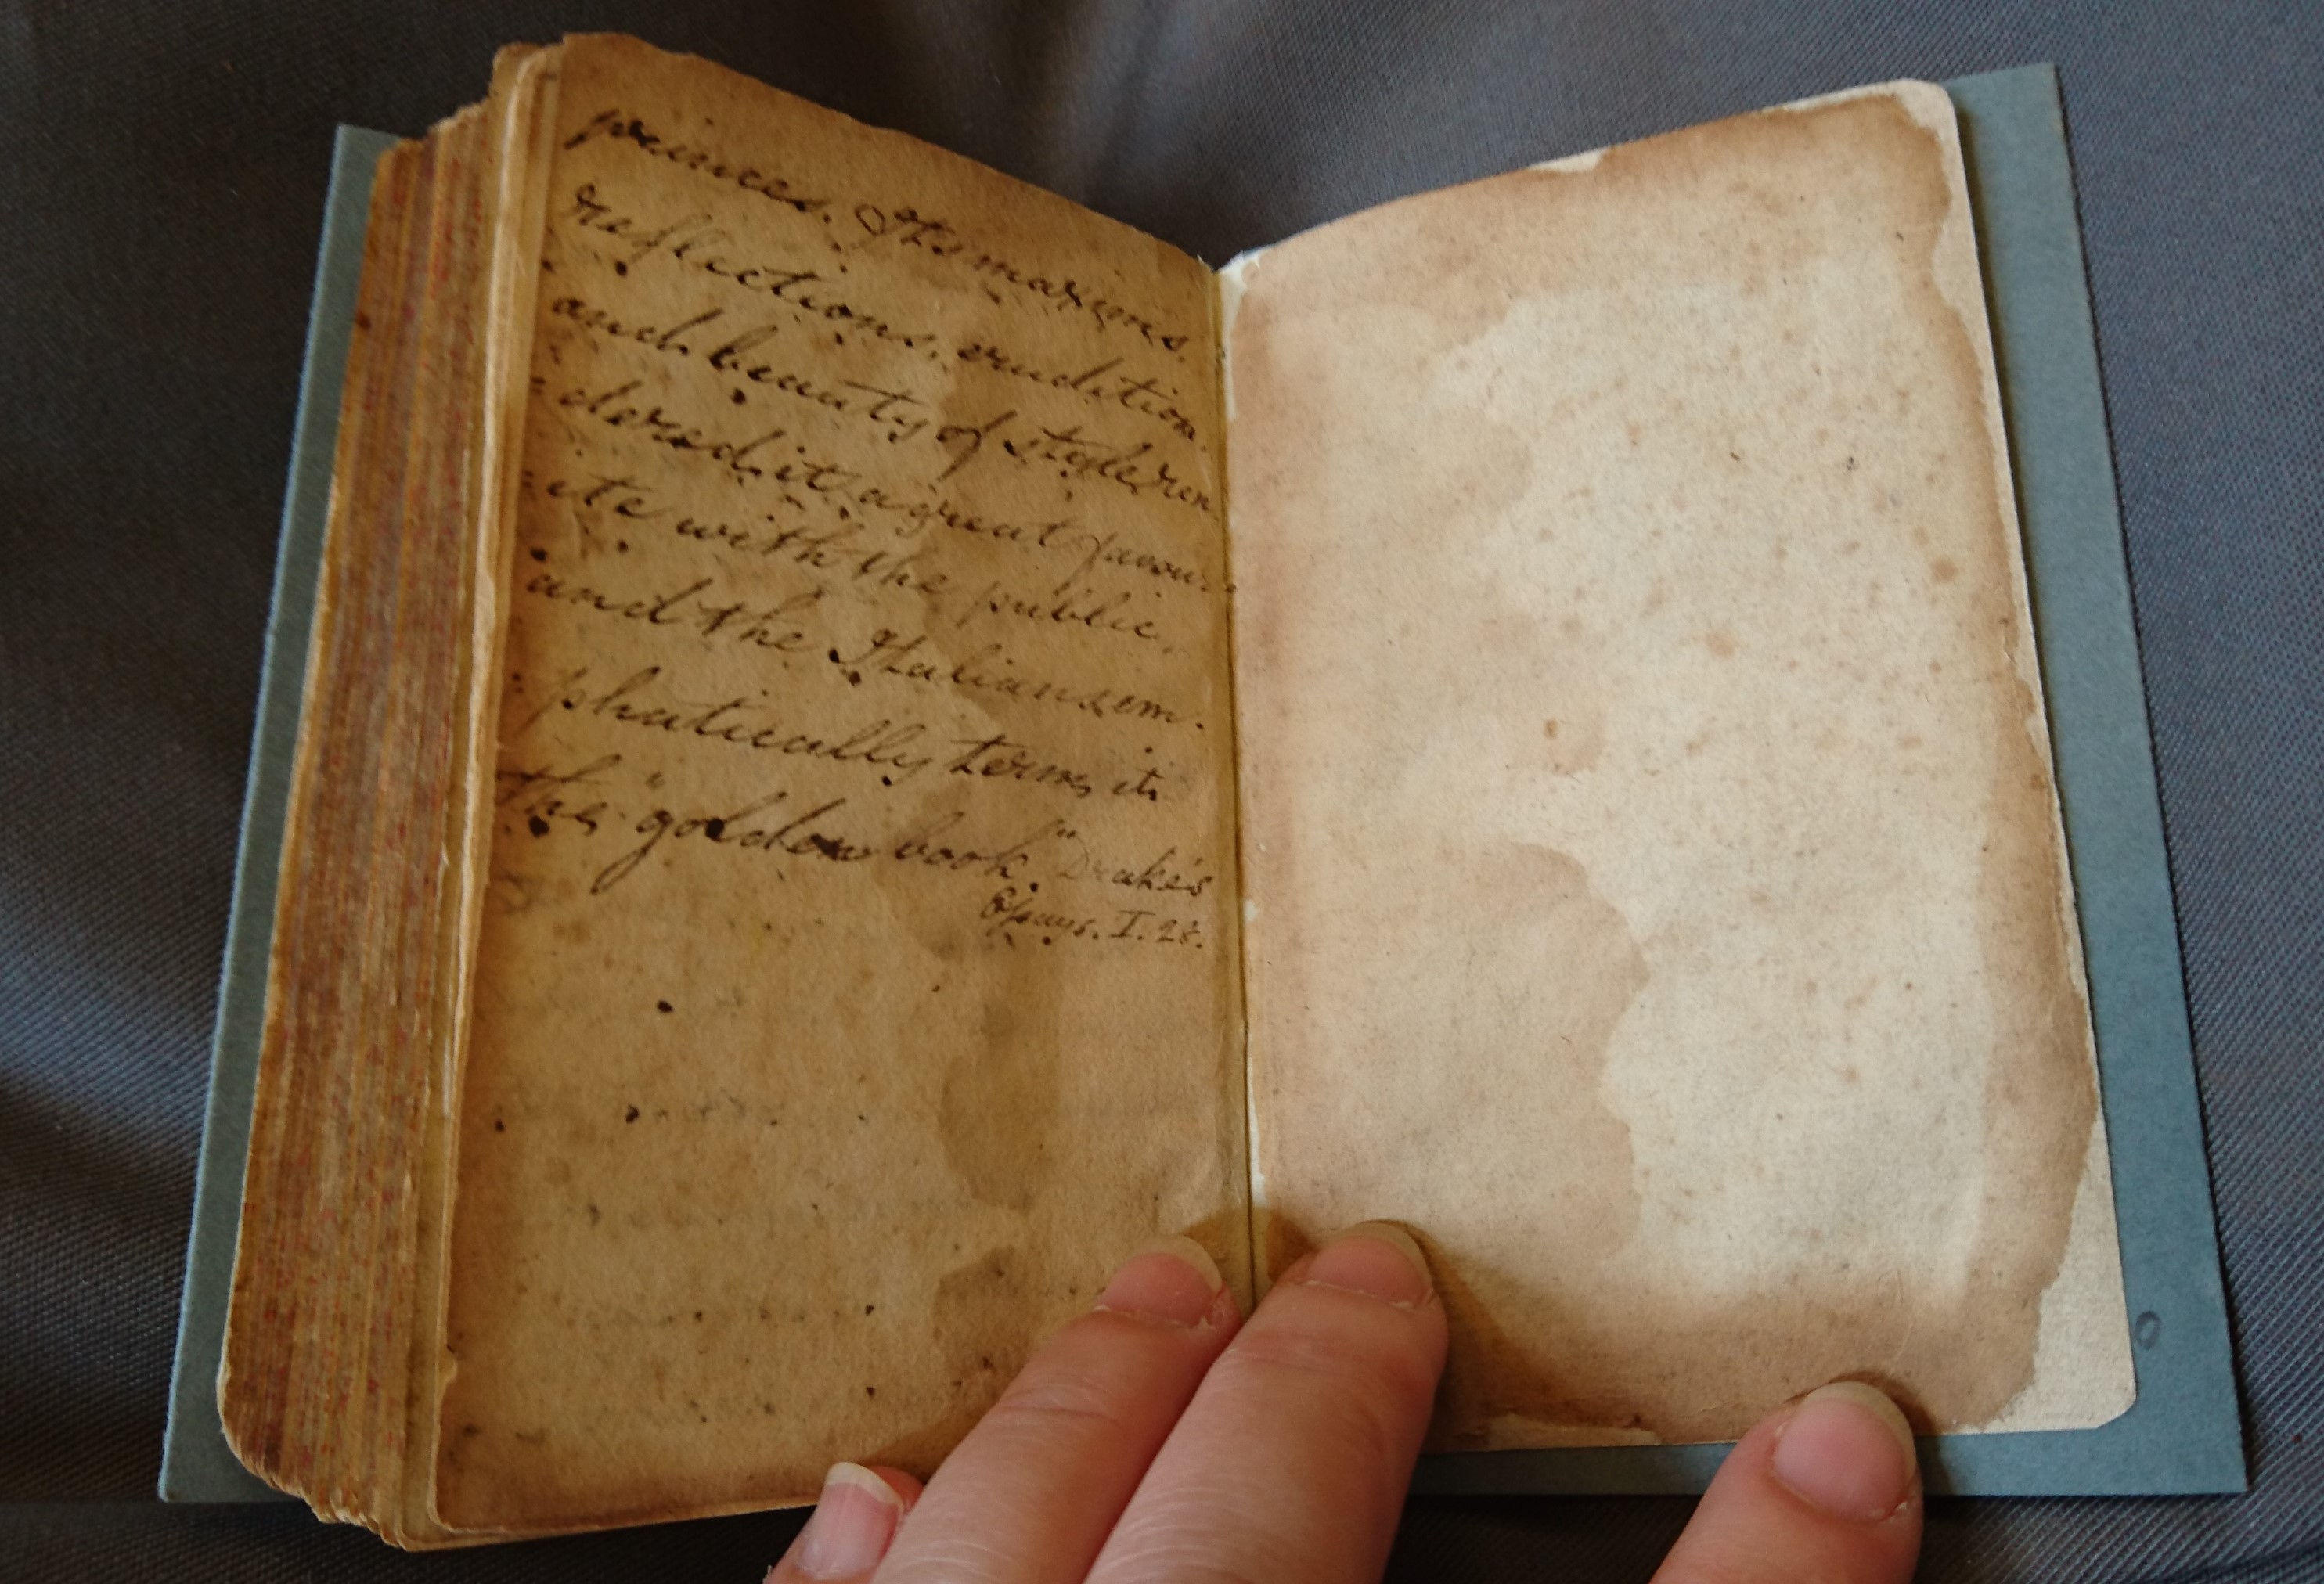 princes. Its maxims.
reflections, erudition.
and beauty of style ren
dered it a great favour.
ite with the public.
and the Italians em.
phatically term it
the "golden book." Drake's
Essays. I. 28.
0